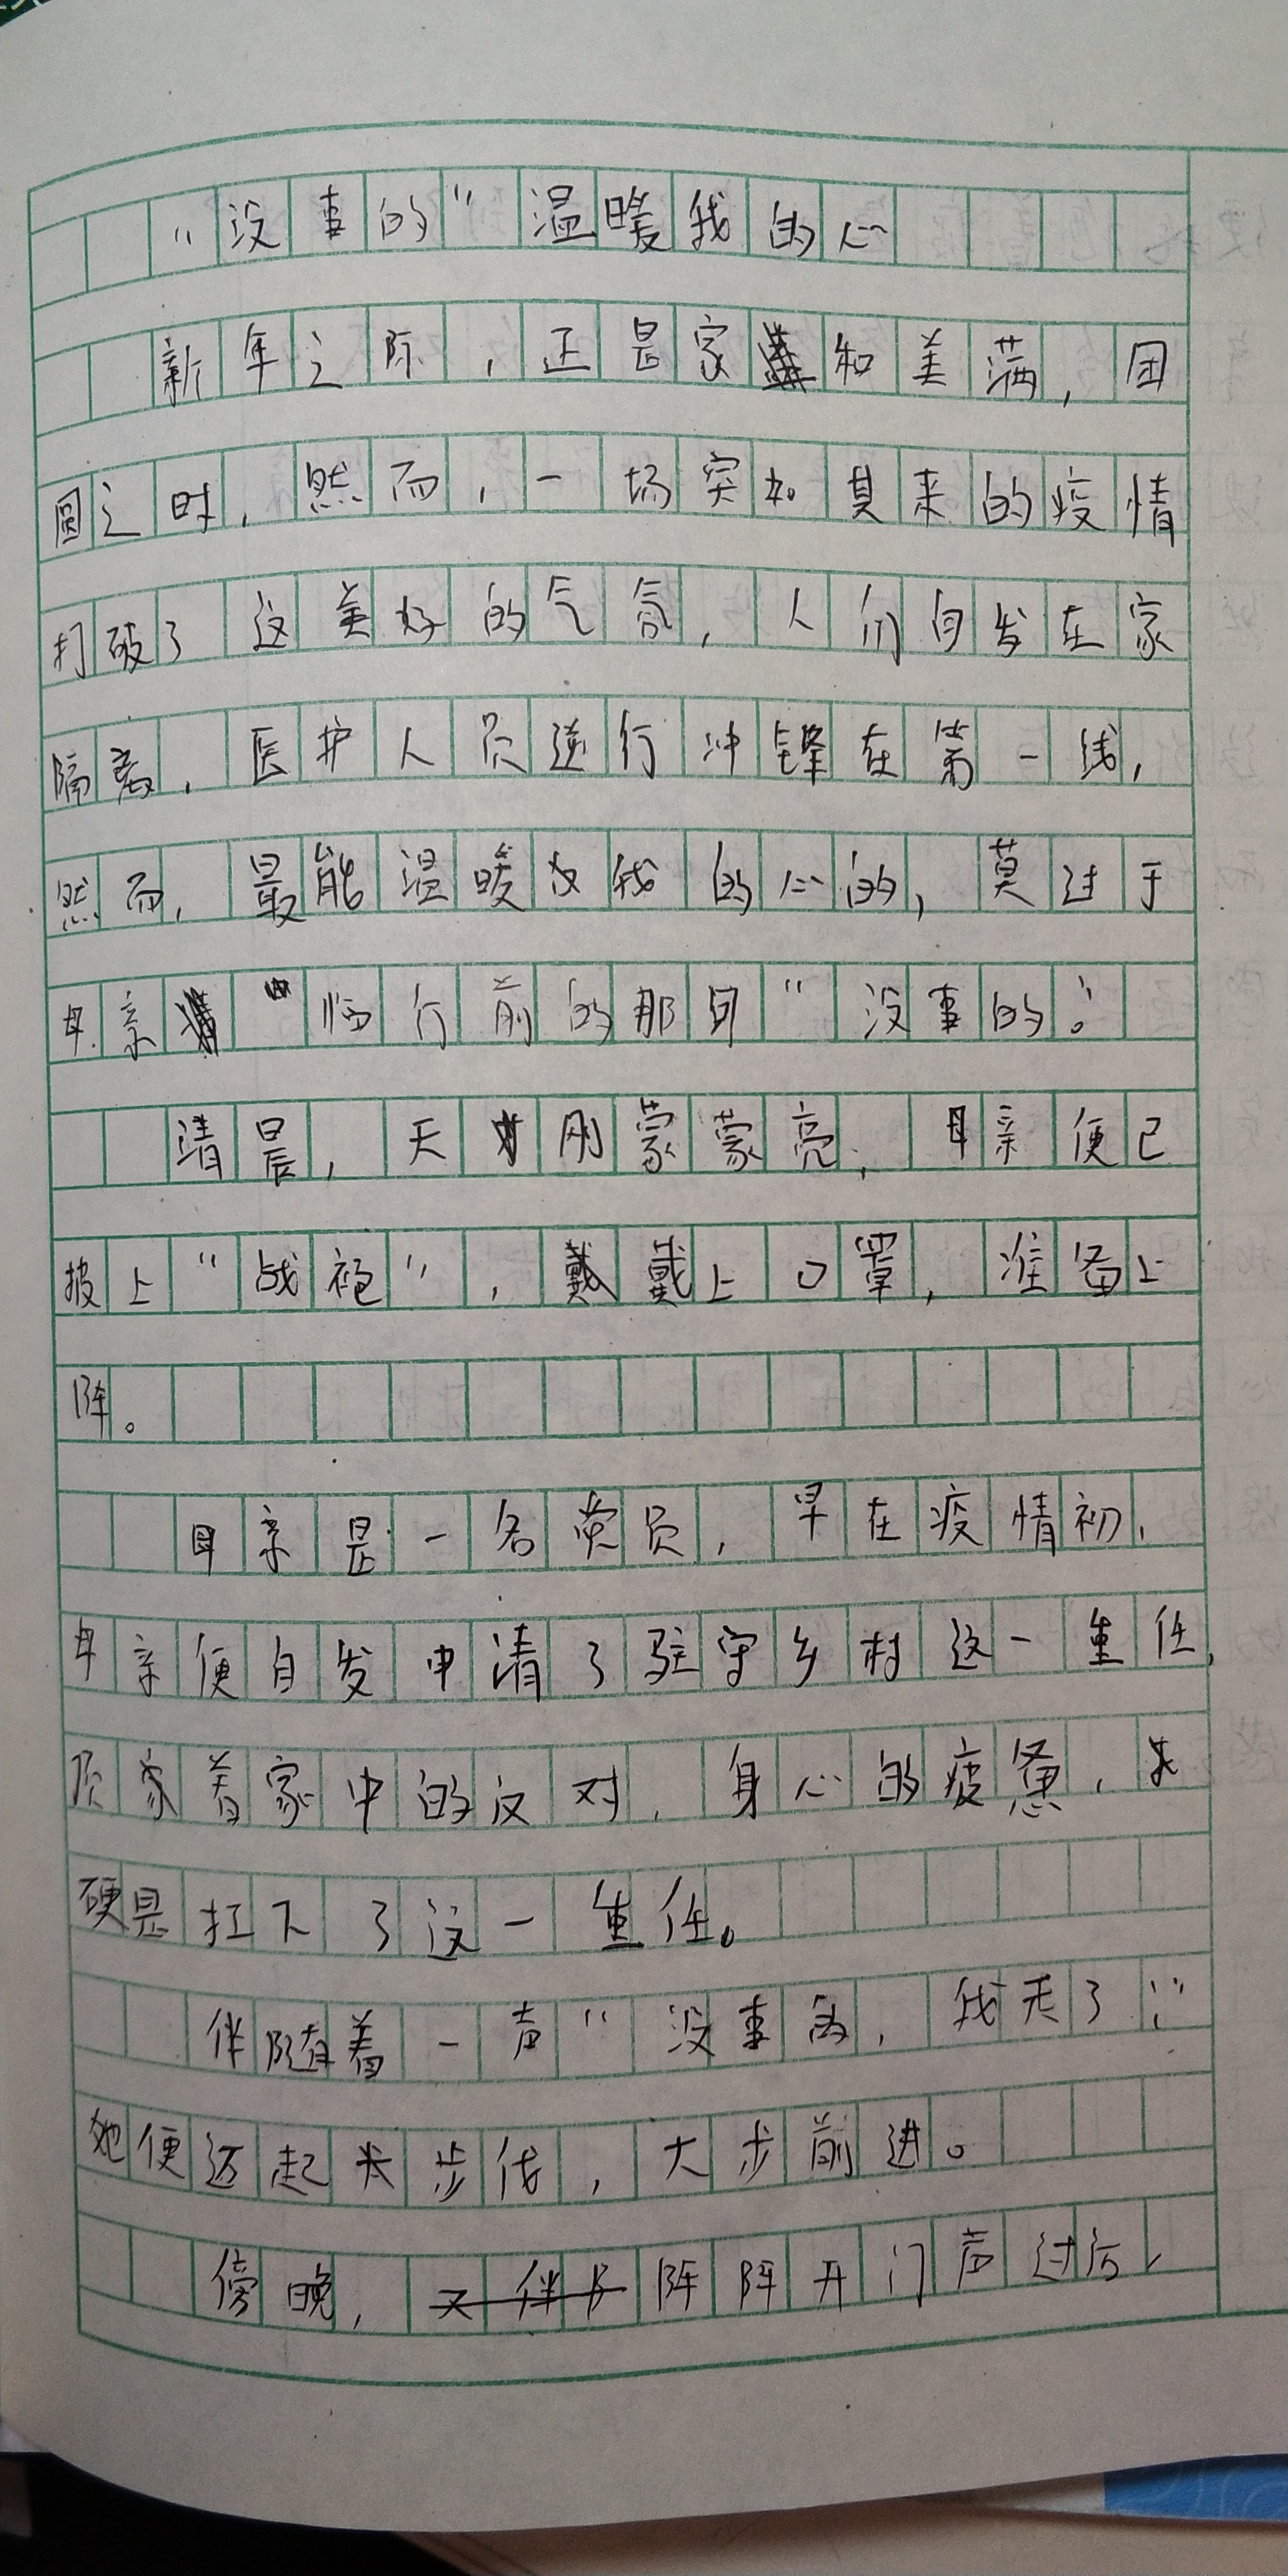 “没事的”温暖我的心
新年之际，正是家和美满，团
圆之时，然而，一场突如其来的疫情
打破了这美好的气氛，人们自发在家
隔离，医护人员逆行冲锋在第一线，
然而，最能温暖我的心的，莫过于
母亲临行前的那句“没事的”。
清晨，天刚蒙蒙亮，母亲便已
披上“战袍”，戴上口罩，准备上
阵。
母亲是一名党员，早在疫情初，
母亲便自发申请了驻守乡村这一重任，
顶着家中的反对，身心的疲惫，
硬是扛下了这一重任。
伴随着一声“没事的，我走了！”
她便迈起步伐，大步前进。
傍晚，阵阵开门声过后，